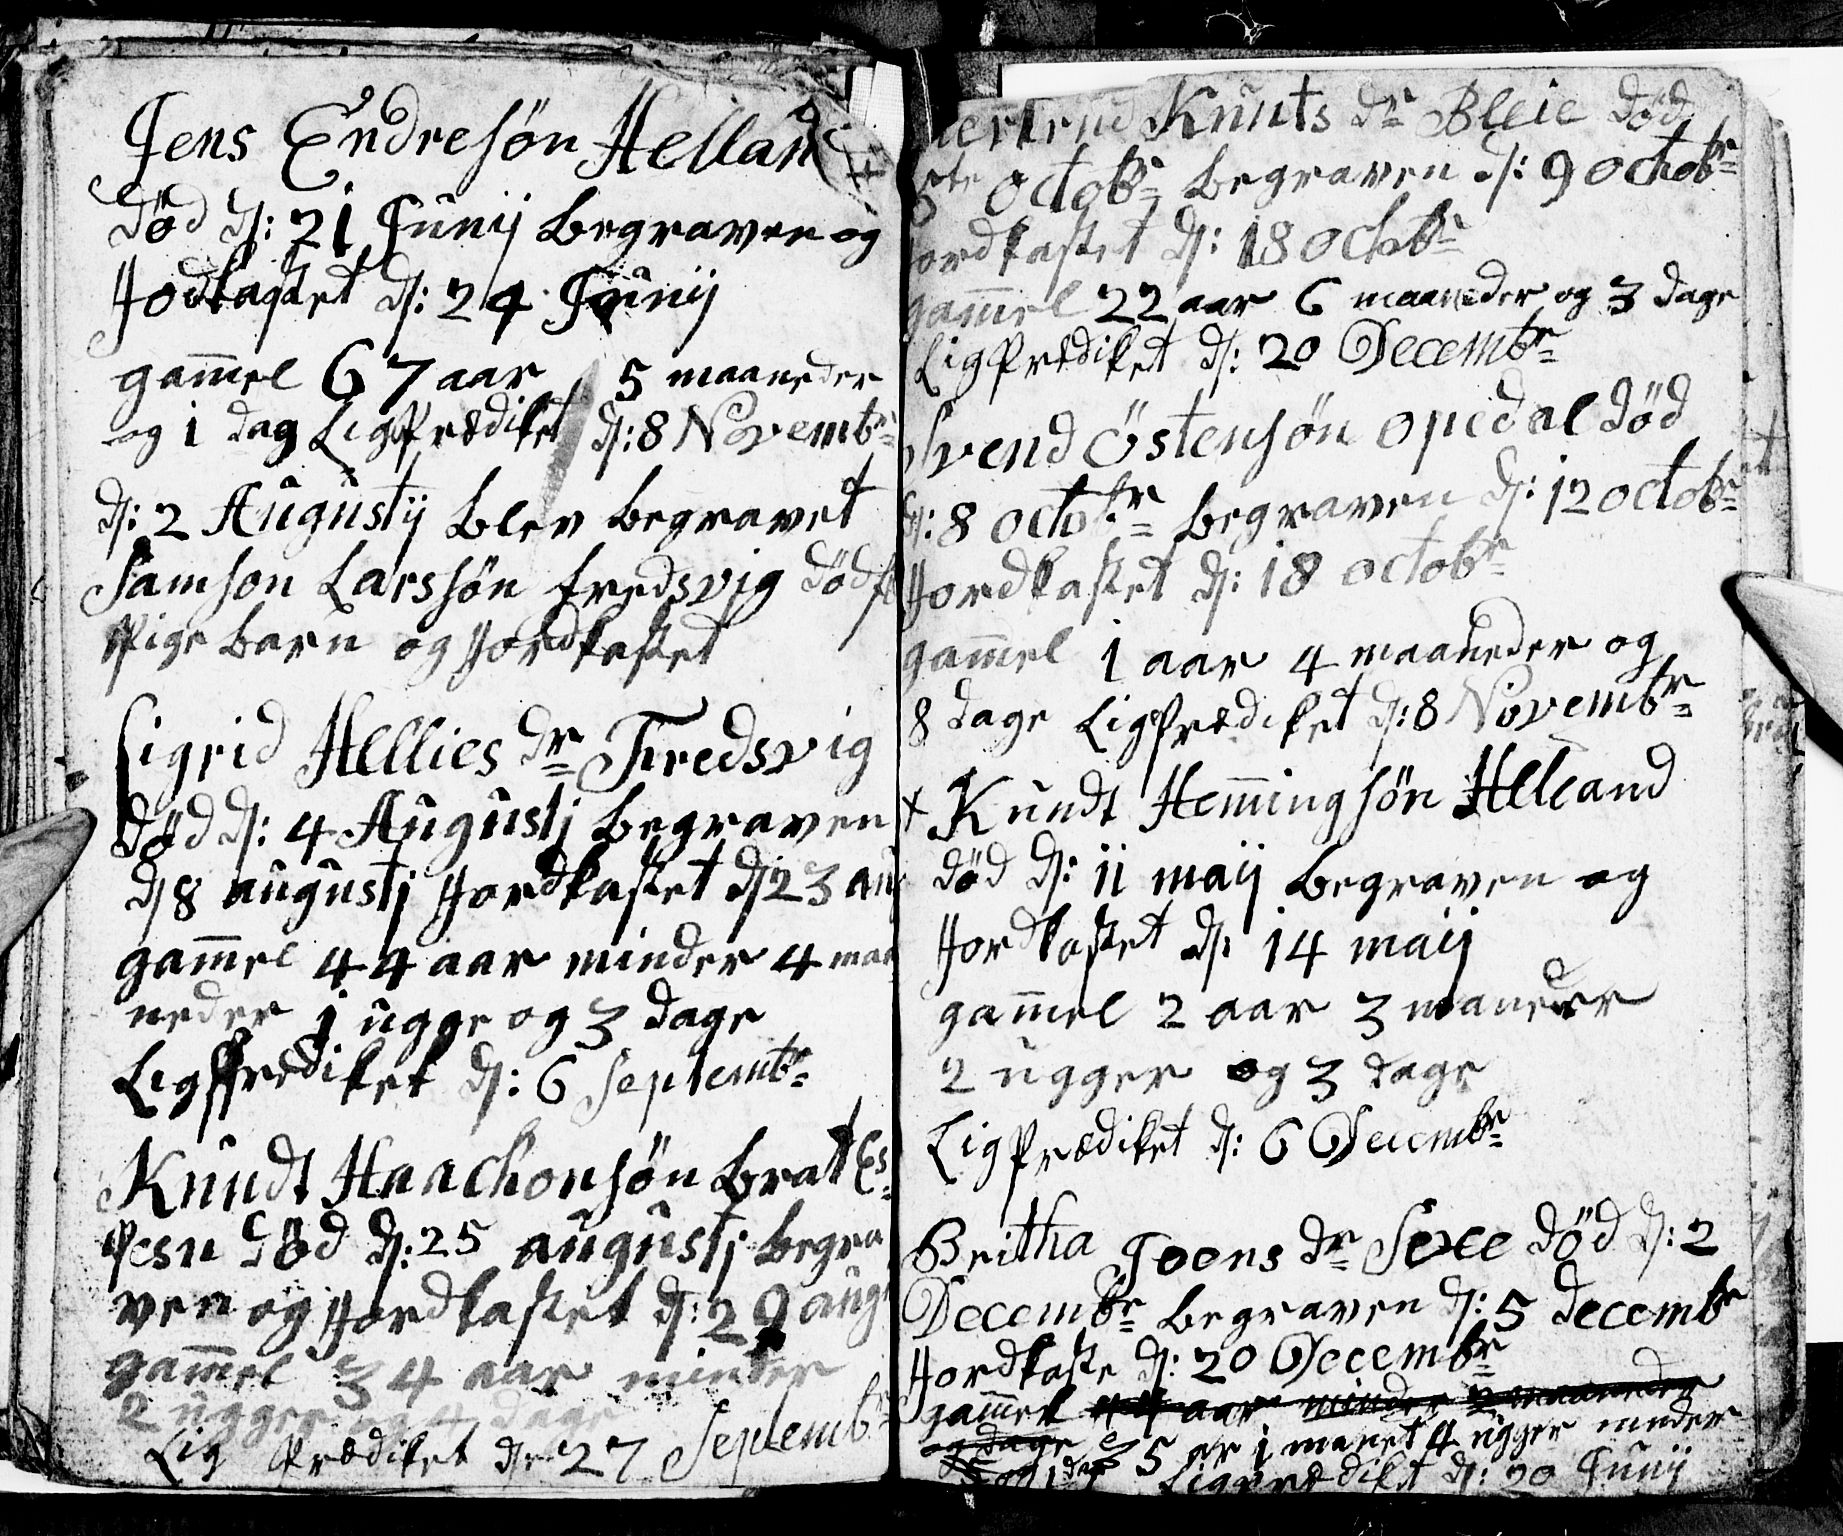 Jens Endresön Helland
död ds: 21 Junij begraven og
Jodkastet ds: 24 Junij
gam̄el 67 aar 5 maaneder
og 1 dag Ligprædiket ds: 8 Novembr
ds: 2 Augustij blev begravet
Samson Larssön fredsvig död
Pige barn og Jordkastet
Sigrid Hellies dr Fredsvig
död ds: 4 Augustj begraven
ds 8 augustj Jordkastet ds 23 aug
gam̄el 44 aar minder 4 maa
neder 1 ugge og 3 dage
Ligprediket ds: 6 Septembr
Knudt Haachonsön brat Es
pesn död ds: 25 augustj begra
ven og Jordkastet ds: 29 aug
gam̄el 34 aar minder
2 ugger og 4 dage
Lig Prædiket ds 27 Septembr
Giertrud Knuts dr Bleie död
octobr begraven ds: 9 octobr
Jordkastet ds: 18 octobr
gam̄el 22 aar 6 maaneder og 3 dage
Ligprædiket ds: 20 Decembr
Svend Östensön opedal död
ds: 8 octobr begraven ds: 12 octobr
Jordkastet ds: 18 octobr
gam̄el 1 aar 4 maaneder og
8 dage Ligprædiket ds: 8 Novembr
+ Kundt Hem̄ingsön Helleand
död ds: 11 maij begraven og
Jordkastet ds 14 maij
gam̄el 2 aar 3 maneder
2 ugger og 3 dage
Ligprædiket ds: 6 Decembr
Britha Joens dr Sexe död ds: 2
Decembr begraven ds: 5 decembr
Jordkaste ds: 20 Decembr
gam̄el 44 aar minder 2 maaneder
og dage 35 ar 1 manet 4 ugger minder
og 1 dag Ligprædiket ds: 20 Junij